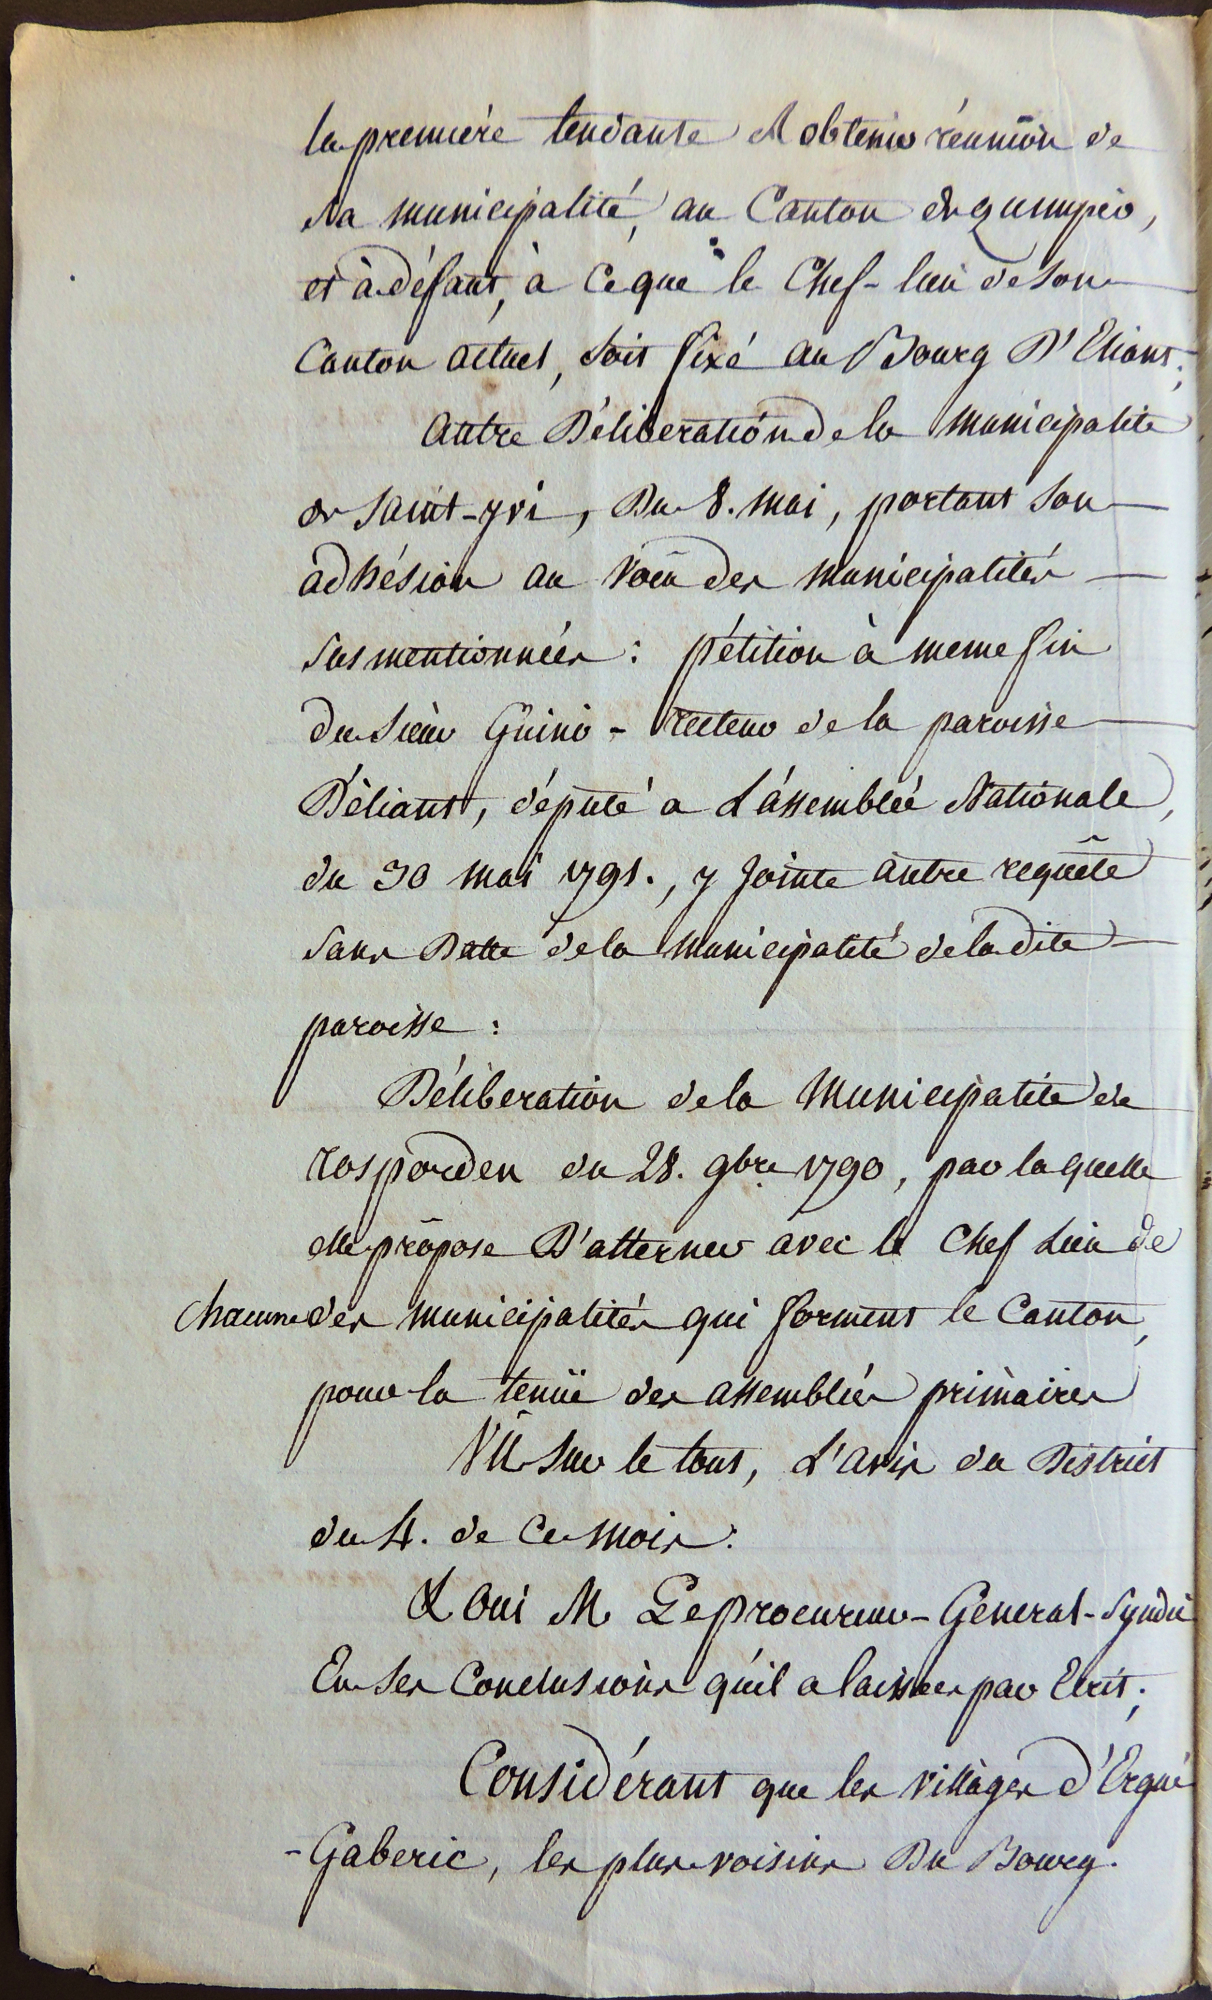 la premiére tendante A obtenir réunion de
sa municipalité, au Canton de quimper,
et à défaut, à ce que le Chef-lieu de son
Canton actuel, soit fixé au Bourg D'Eliant;
autre Déliberation de la municipalité
de saint-yvi, Du 8. mai, portant son
adhésion au voeu des municipalités
susmentionnées : pétition à meme fin
du sieur Guino - recteur de la paroisse
D'éliant, député a L'assemblée Nationale,
du 30 mai 1791., y jointe autre requête
sans Datte de la municipalité de la dite
paroisse :
Déliberation de la Municipalité de
rosporden du 28. 9bre 1790, par laquelle
elle propose D'alterner avec le Chef Lieu de
chacune des municipalités qui forment le Canton,
pour la tenüe des assemblées primaires
Vû sur le tout, L'avis du District
du 4. de Ce mois :
Oui M Le procureur-General-Syndic
En ses Conclusions qu'il a laissées par Ecrit;
Considérant que les villages d'Ergué
-Gaberic, les plus voisins Du Bourg.